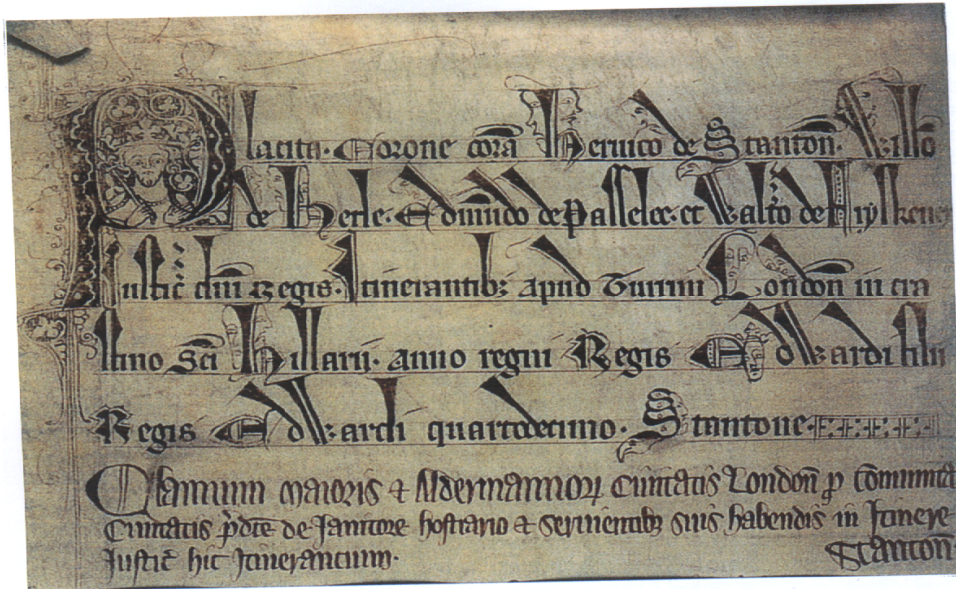 Placita. Corone corā Heruico de Stantoñ. Willō
de Herle. Edmūdo de Passelee. et Walťo de Fryskeney
Iustic̄ dñi Regis. Itinerantibȝ apud Turrim Londoñ in cra
stino Sc̄i Hillarij. anno regni Regis Edwardi filii
Regis Edwardi quartodecimo. Stantone
Clamium maioris & Aldermannoꝝ Ciuitatis Londoñ ꝑ Cōmunita
Ciuitatis p̄dc̄e de Janitore hostiario & seruientibȝ suis habendis in Itinere
Justic̄ hic Itinerancium.
Stantoñ.